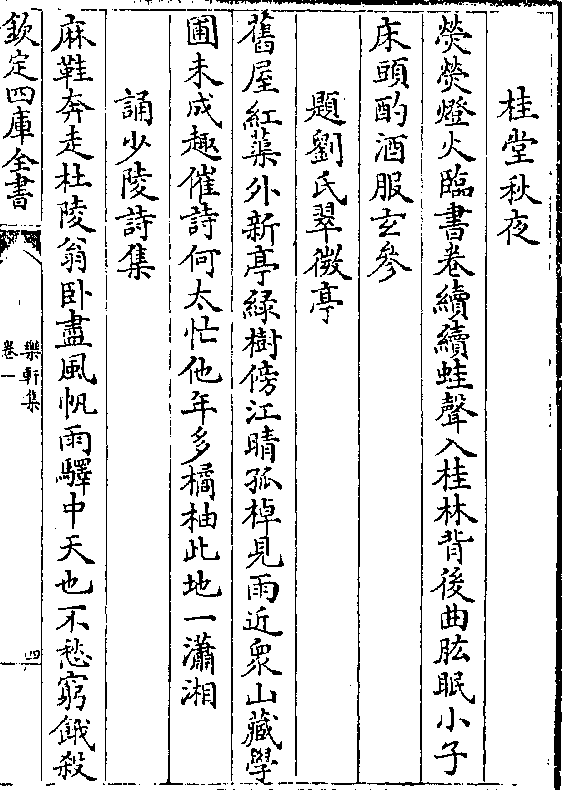 桂堂秋夜
熒熒燈火臨書卷續續蛙聲入桂林背後曲肱眠小子
床頭酌酒服玄參
題劉氏翠微亭
舊屋紅蕖外新亭綠樹傍江晴孤棹見雨近衆山藏學
圃未成趣催詩何太忙他年多橘柚此地一瀟湘
誦少陵詩集
麻鞋奔走杜陵翁卧盡風帆雨驛中天也不愁窮餓殺
欽定四庫全書
樂軒集
卷一
四